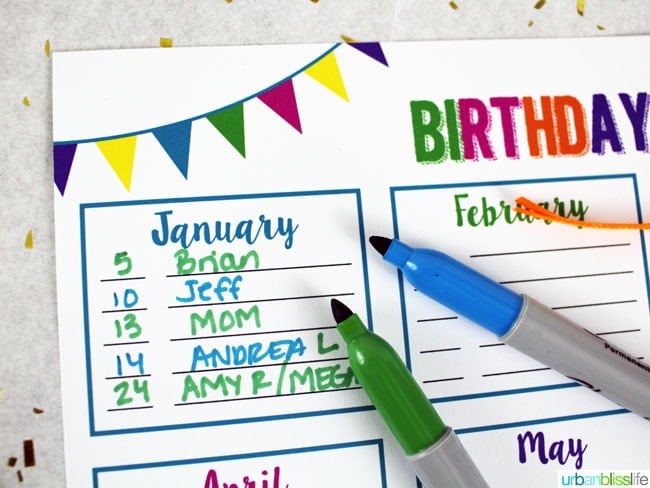 BIRTHDAY
January
February
5 Brian
10 Jeff
13 MOM
14 ANDREA L
24 AMY R/MEGA
April
May
Permanent
urbanblisslife